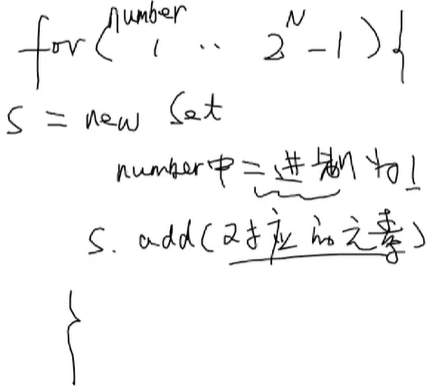 for(number 1 .. 2^N-1){
S = new Set
number中二进制为1
S. add(对应的元素)
}